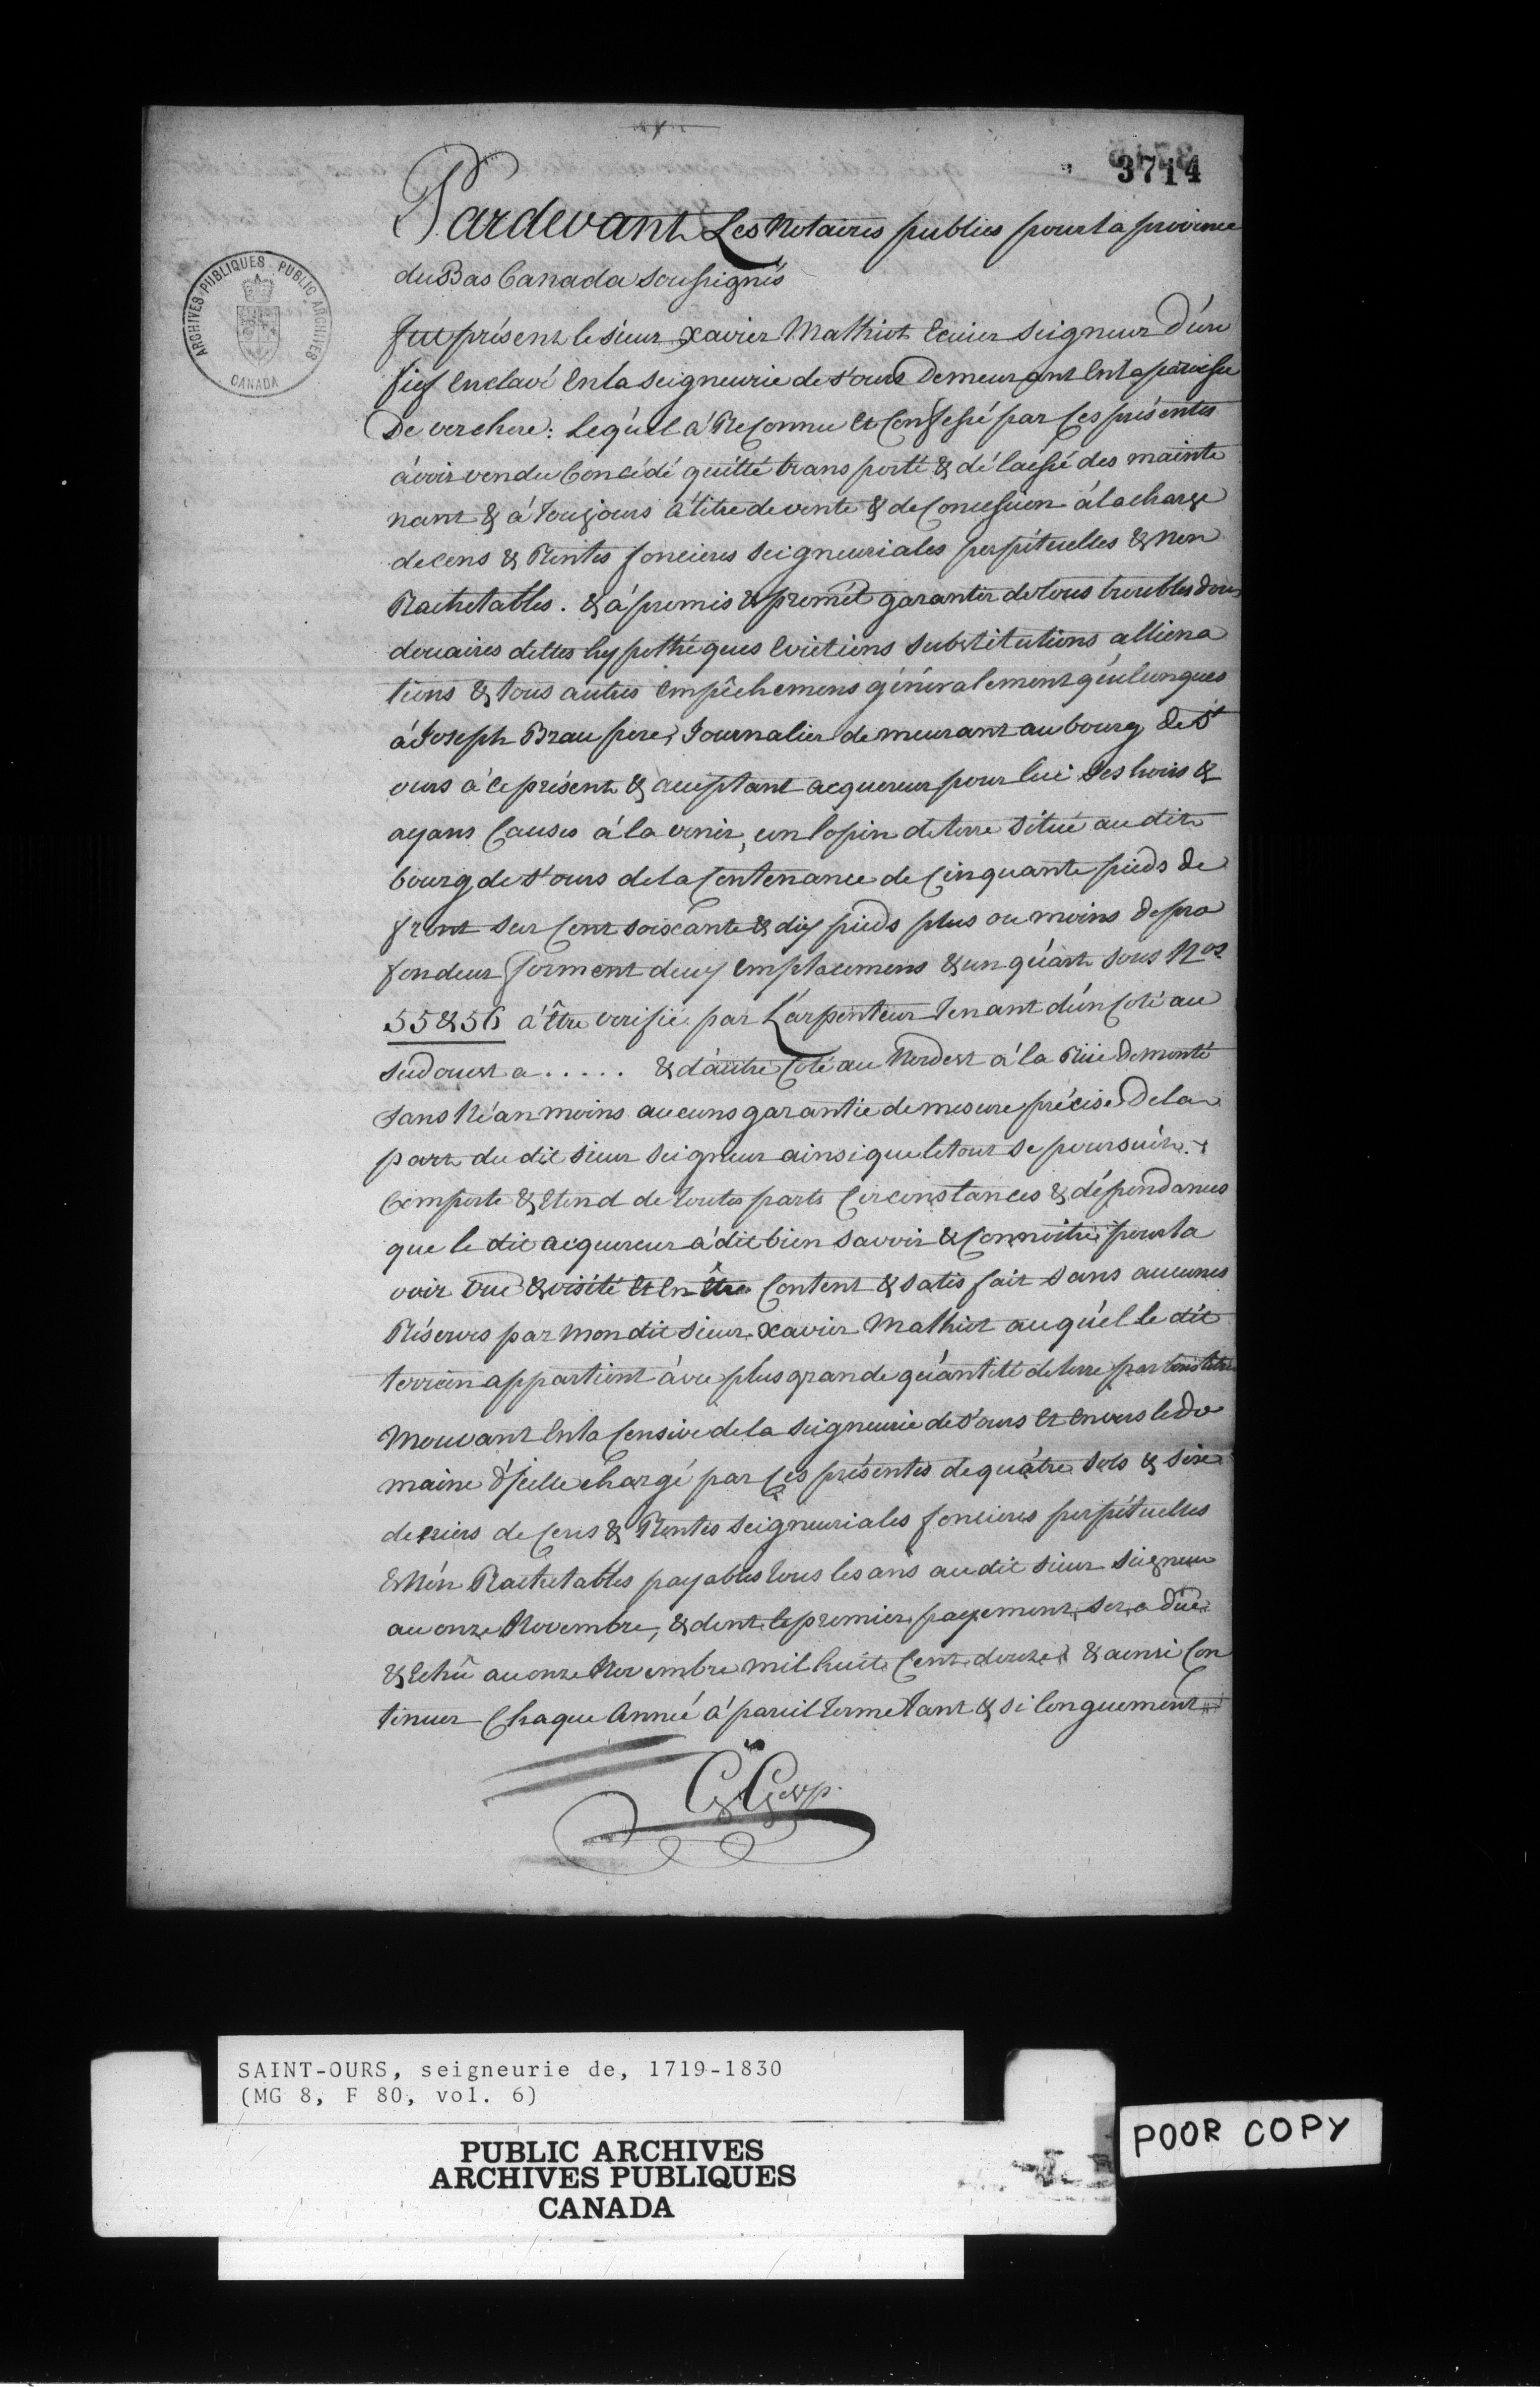 3714
Pardevant Les Notaires publics pour la province
du Bas Canada soussignés
ARCHIVES PUBLIQUES PUBLIC ARCHIVES
CANADA
Fut présent le sieur Xavier Mathiot Ecuier Seigneur D'un
fief Enclavé En la Seigneurie de st ours Demeurant En la paroisse
De verchere: Lequ'el à ReConnu Et Confessé par Ces présentes
avoir vendu Concédé quitté transporté & délaissé des mainte
nant & à Toujours à titre de vente & de Concession à la charge
de cens & Rentes foncieres Seigneuriales perpétuelles & Non
Rachetables. & à promis & promêt garantir de tous troubles dons
douaires dettes hypothéques Evictions Substitutions alliena
tions & tous autres Empêchemens généralement qu'elconques
à Joseph Brau pere, Journalier demeurant au bourg de St
ours à Ce présent & acceptant acquereur pour lui Ses hoirs &
ayans Causes à la venir, un lopin de terre Situé au dit
bourg de st ours de la Contenance de Cinquante pieds de
front sur Cent soixante & dix pieds plus ou moins de pro
fondeur forment deux Emplacemens & un quart sous Nos
55 & 56 à être verifié par L'arpenteur Tenant d'un Coté au
Sud ouest a ..... & d'autre Coté au Nordest à la Rüe Demonté
Sans Néanmoins aucuns garantie de mesure précise De la
part du dit Sieur Seigneur ainsi que le tout Se poursuit
Comporte & Etend de toutes parts Circonstances & dépendances
que le dit acquereur à dit bien savoir & Connoitre pour la
voir vue & visité Et En être Content & satisfait Sans aucunes
Réserves par mon dit sieur Xavier Mathiot auqu'el le dit
terrein appartient avec plus grande quantité de terre par bons titres
Mouvant En la Censive de la Seigneurie de st ours Et Envers le Do
maine d'Jcelle chargé par Ces présentes de quatre Sols & Six
deniers de Cens & Rentes Seigneuriales foncieres perpétuelles
& Nón Rachetables payables tous les ans au dit sieur Seigneur
au onze Novembre, & dont le premier payement Sera due
& Echû au onze Novembre mil huit Cent douze & ainsi Con
tinuer Chaque Année à pareil terme tant & Si longuement
SAINT-OURS, seigneurie de, 1719-1830
(MG 8, F 80, vol. 6)
PUBLIC ARCHIVES
ARCHIVES PUBLIQUES
CANADA
POOR COPY